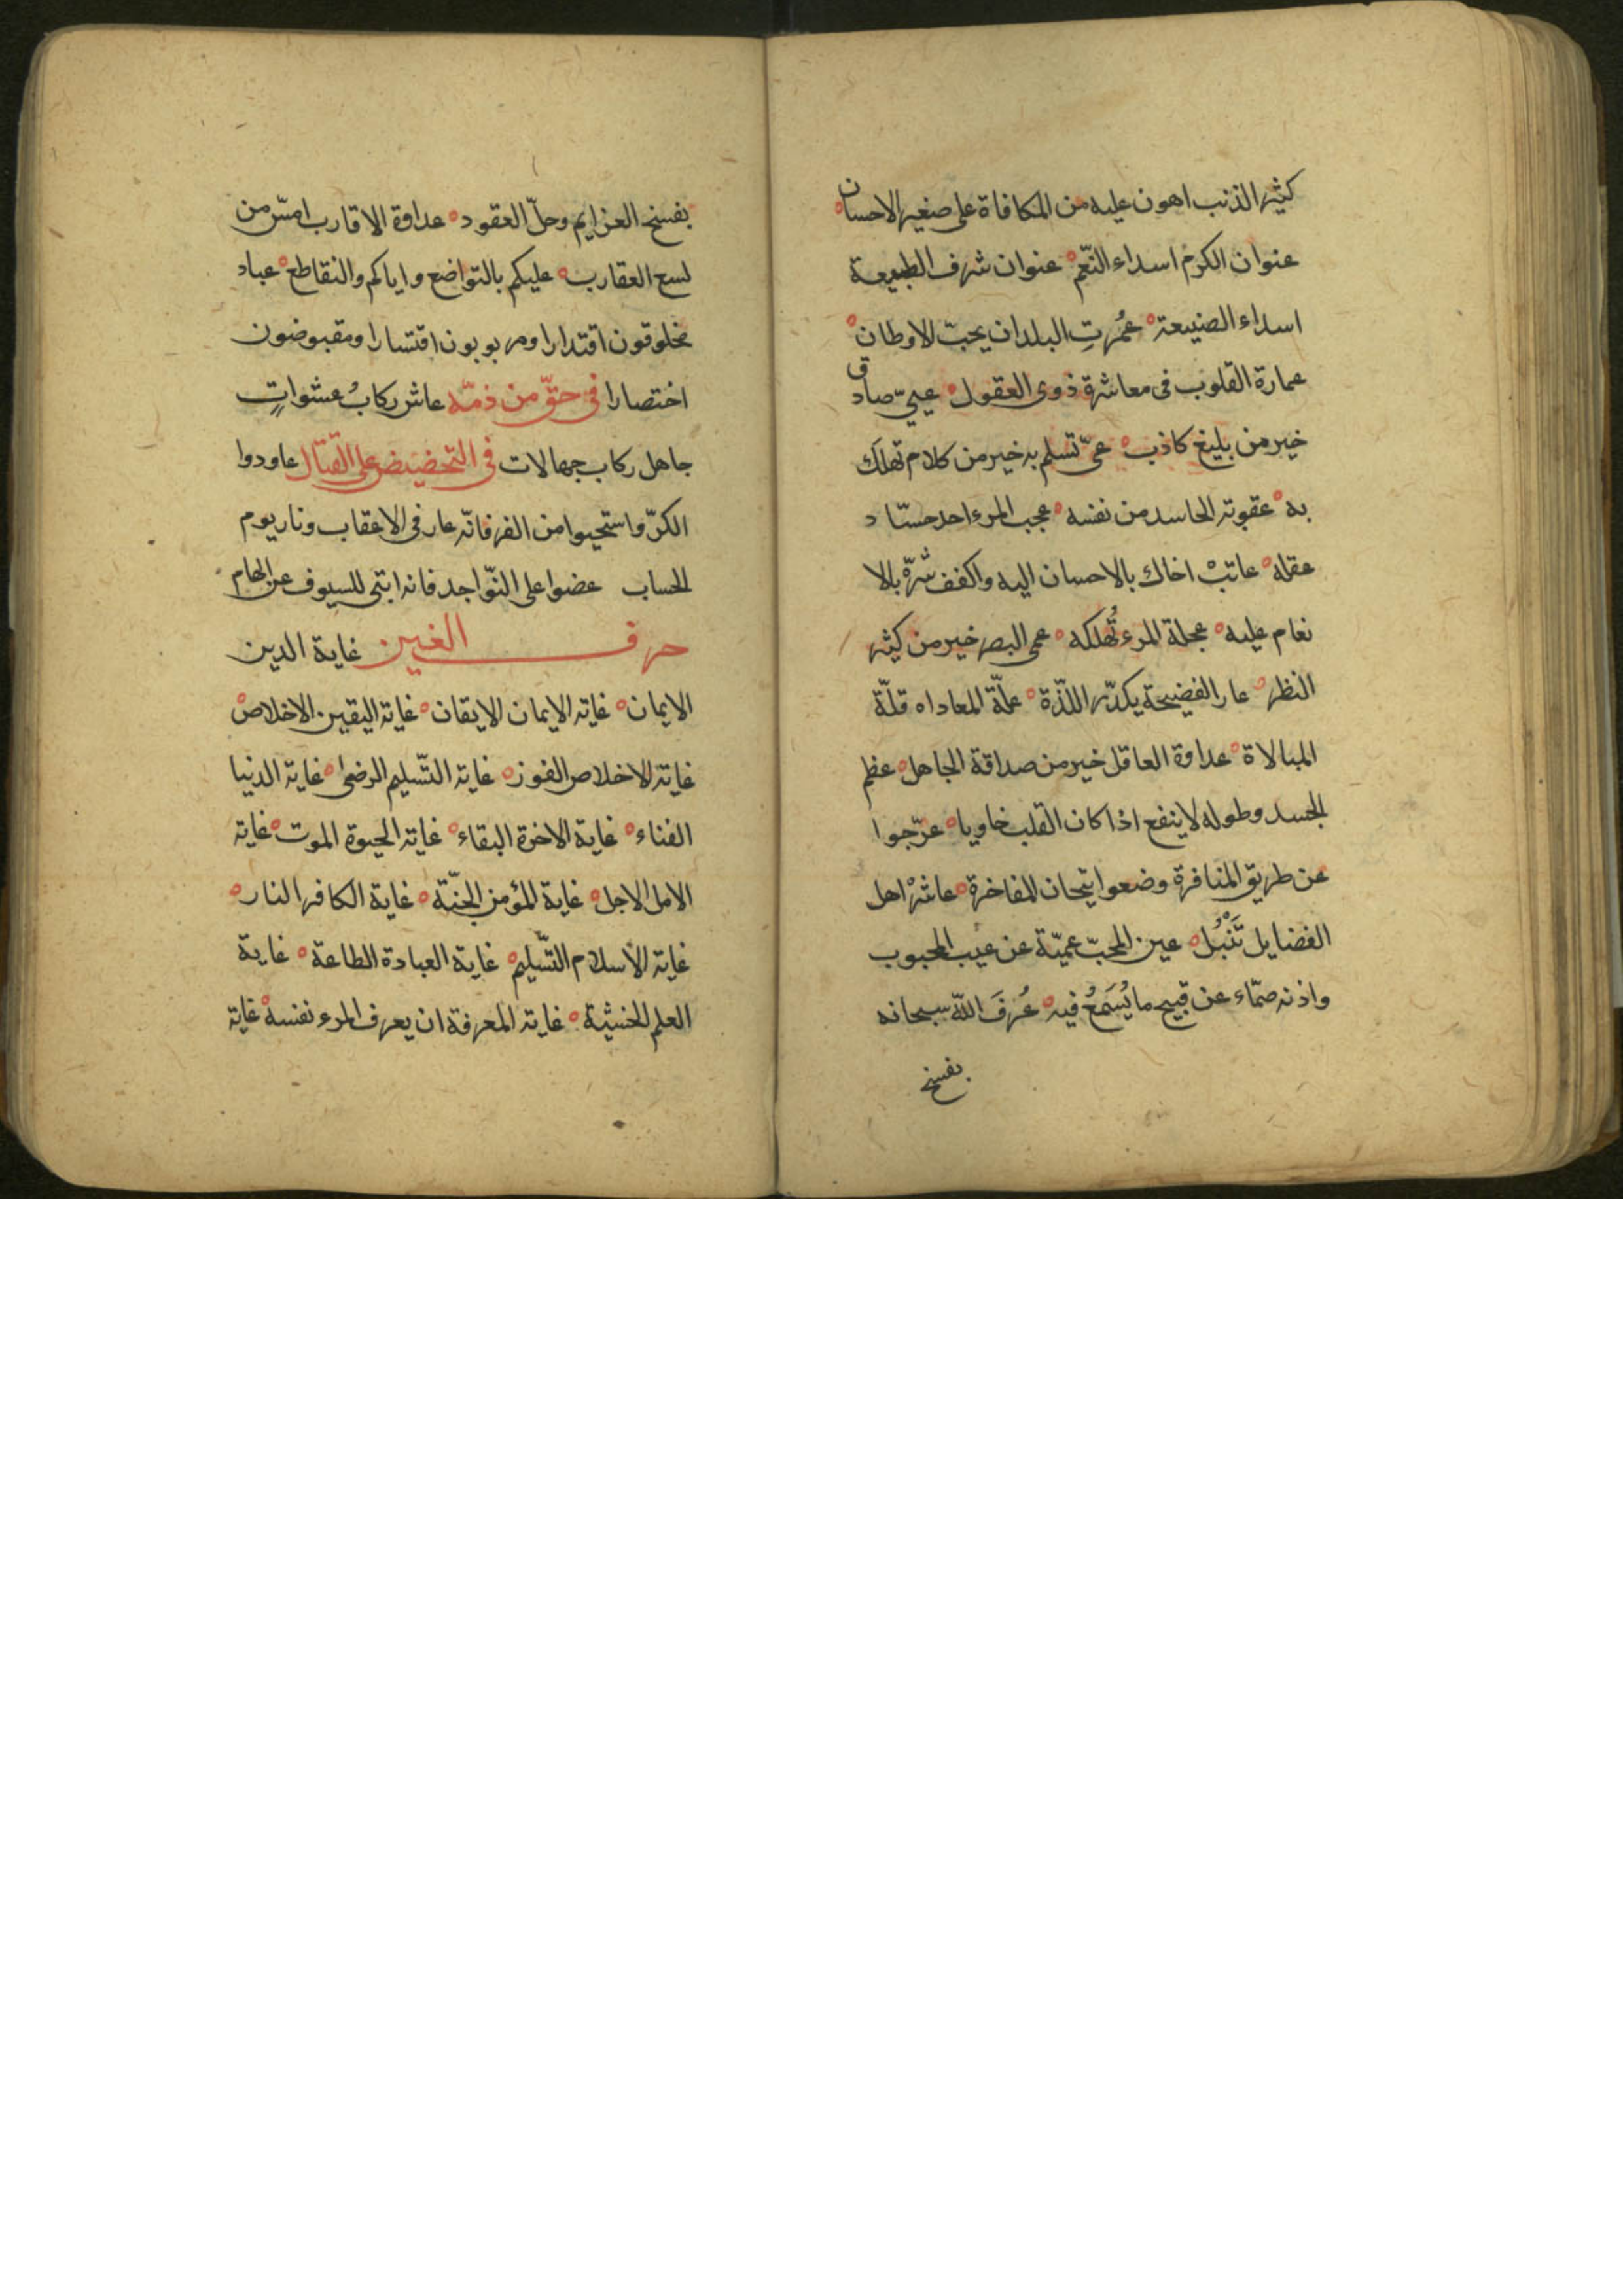 كثير الذنب اهون عليه من المكافاة على صغير الاحسان
عنوان الكرم اسداء النّعم عنوان شرف الطبيعة
اسداء الصنيعة عُمّرتِ البلدان بحبّ الاوطان
عمارة القلوب فى معاشرة ذوى العقول عييّ صادق
خير من بليغ كاذب عىّ تسلم به خير من كلام تهلك
به عقوبة الحاسد من نفسه عجب المرء احد حسّاد
عقله عاتبْ اخاك بالاحسان اليه واكفف شرّه بالا
نعام عليه عجلة المرء تُهلكه عمى البصر خير من كثير
النظر عار الفضيحة يكدّر اللذّة علّة المعاداه قلّة
المبالاة عداوة العاقل خير من صداقة الجاهل عظم
الجسد وطوله لا ينفع اذا كان القلب خاويا عرّجوا
عن طريق المنافرة وضعوا تيجان المفاخرة عاشرْ اهل
الفضايل تَنْبُل عين المحبّ عميّة عن عيب المحبوب
واذنه صمّاء عن قبيح ما يُسَمعُ فيه عُرفَ اللّه سبحانه
بفسخ
بفسخ العزايم وحلّ العقود عداوة الاقارب امسّ من
لسع العقارب عليكم بالتواضع واياكم والتقاطع عباد
مخلوقون اقتدارا ومربوبون اقتسارا ومقبوضون
اختصارا فى حقّ من ذمّه عاش ركابُ عشواتٍ
جاهل ركاب جهالات فى التحضيض على القتال عاودوا
الكرّ واستحيوا من الفر فانّه عار فى الاعقاب ونار يوم
الحساب عضوا على النّواجد فانه انبى للسيوف عن الهام
حرف الغين غاية الدين
الايمان غاية الايمان الايقان غاية اليقين الاخلاص
غاية الاخلاص الفوز غاية التّسليم الرضى غاية الدنيا
الفناء غاية الاخرة البقاء غاية الحيوة الموت غاية
الامل الاجل غاية المؤمن الجنّة غاية الكافر النار
غاية الاسلام التّسليم غاية العبادة الطاعة غاية
العلم الخشية غاية المعرفة ان يعرف المرء نفسه غاية